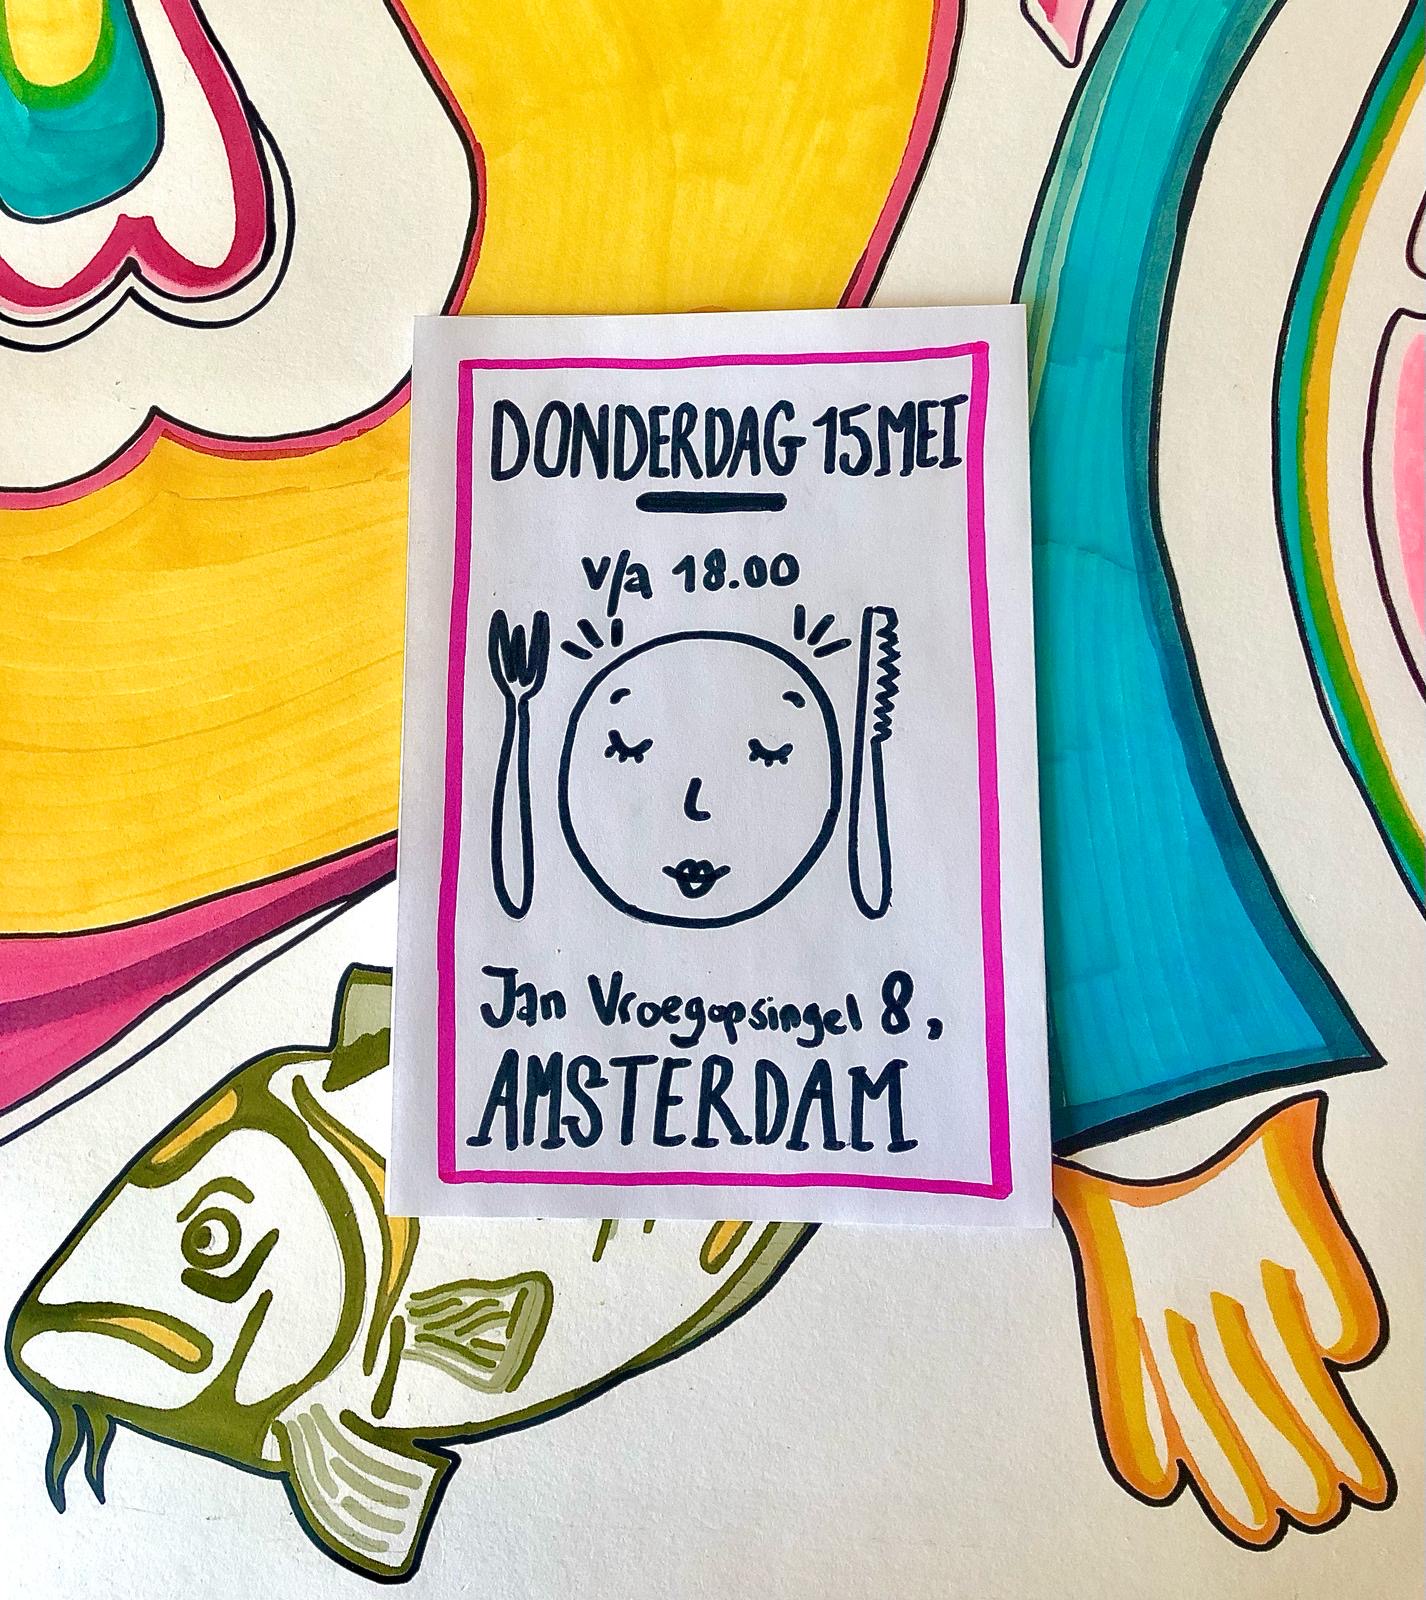 DONDERDAG 15 MEI
v/a 18.00
Jan Vroegopsingel 8,
AMSTERDAM